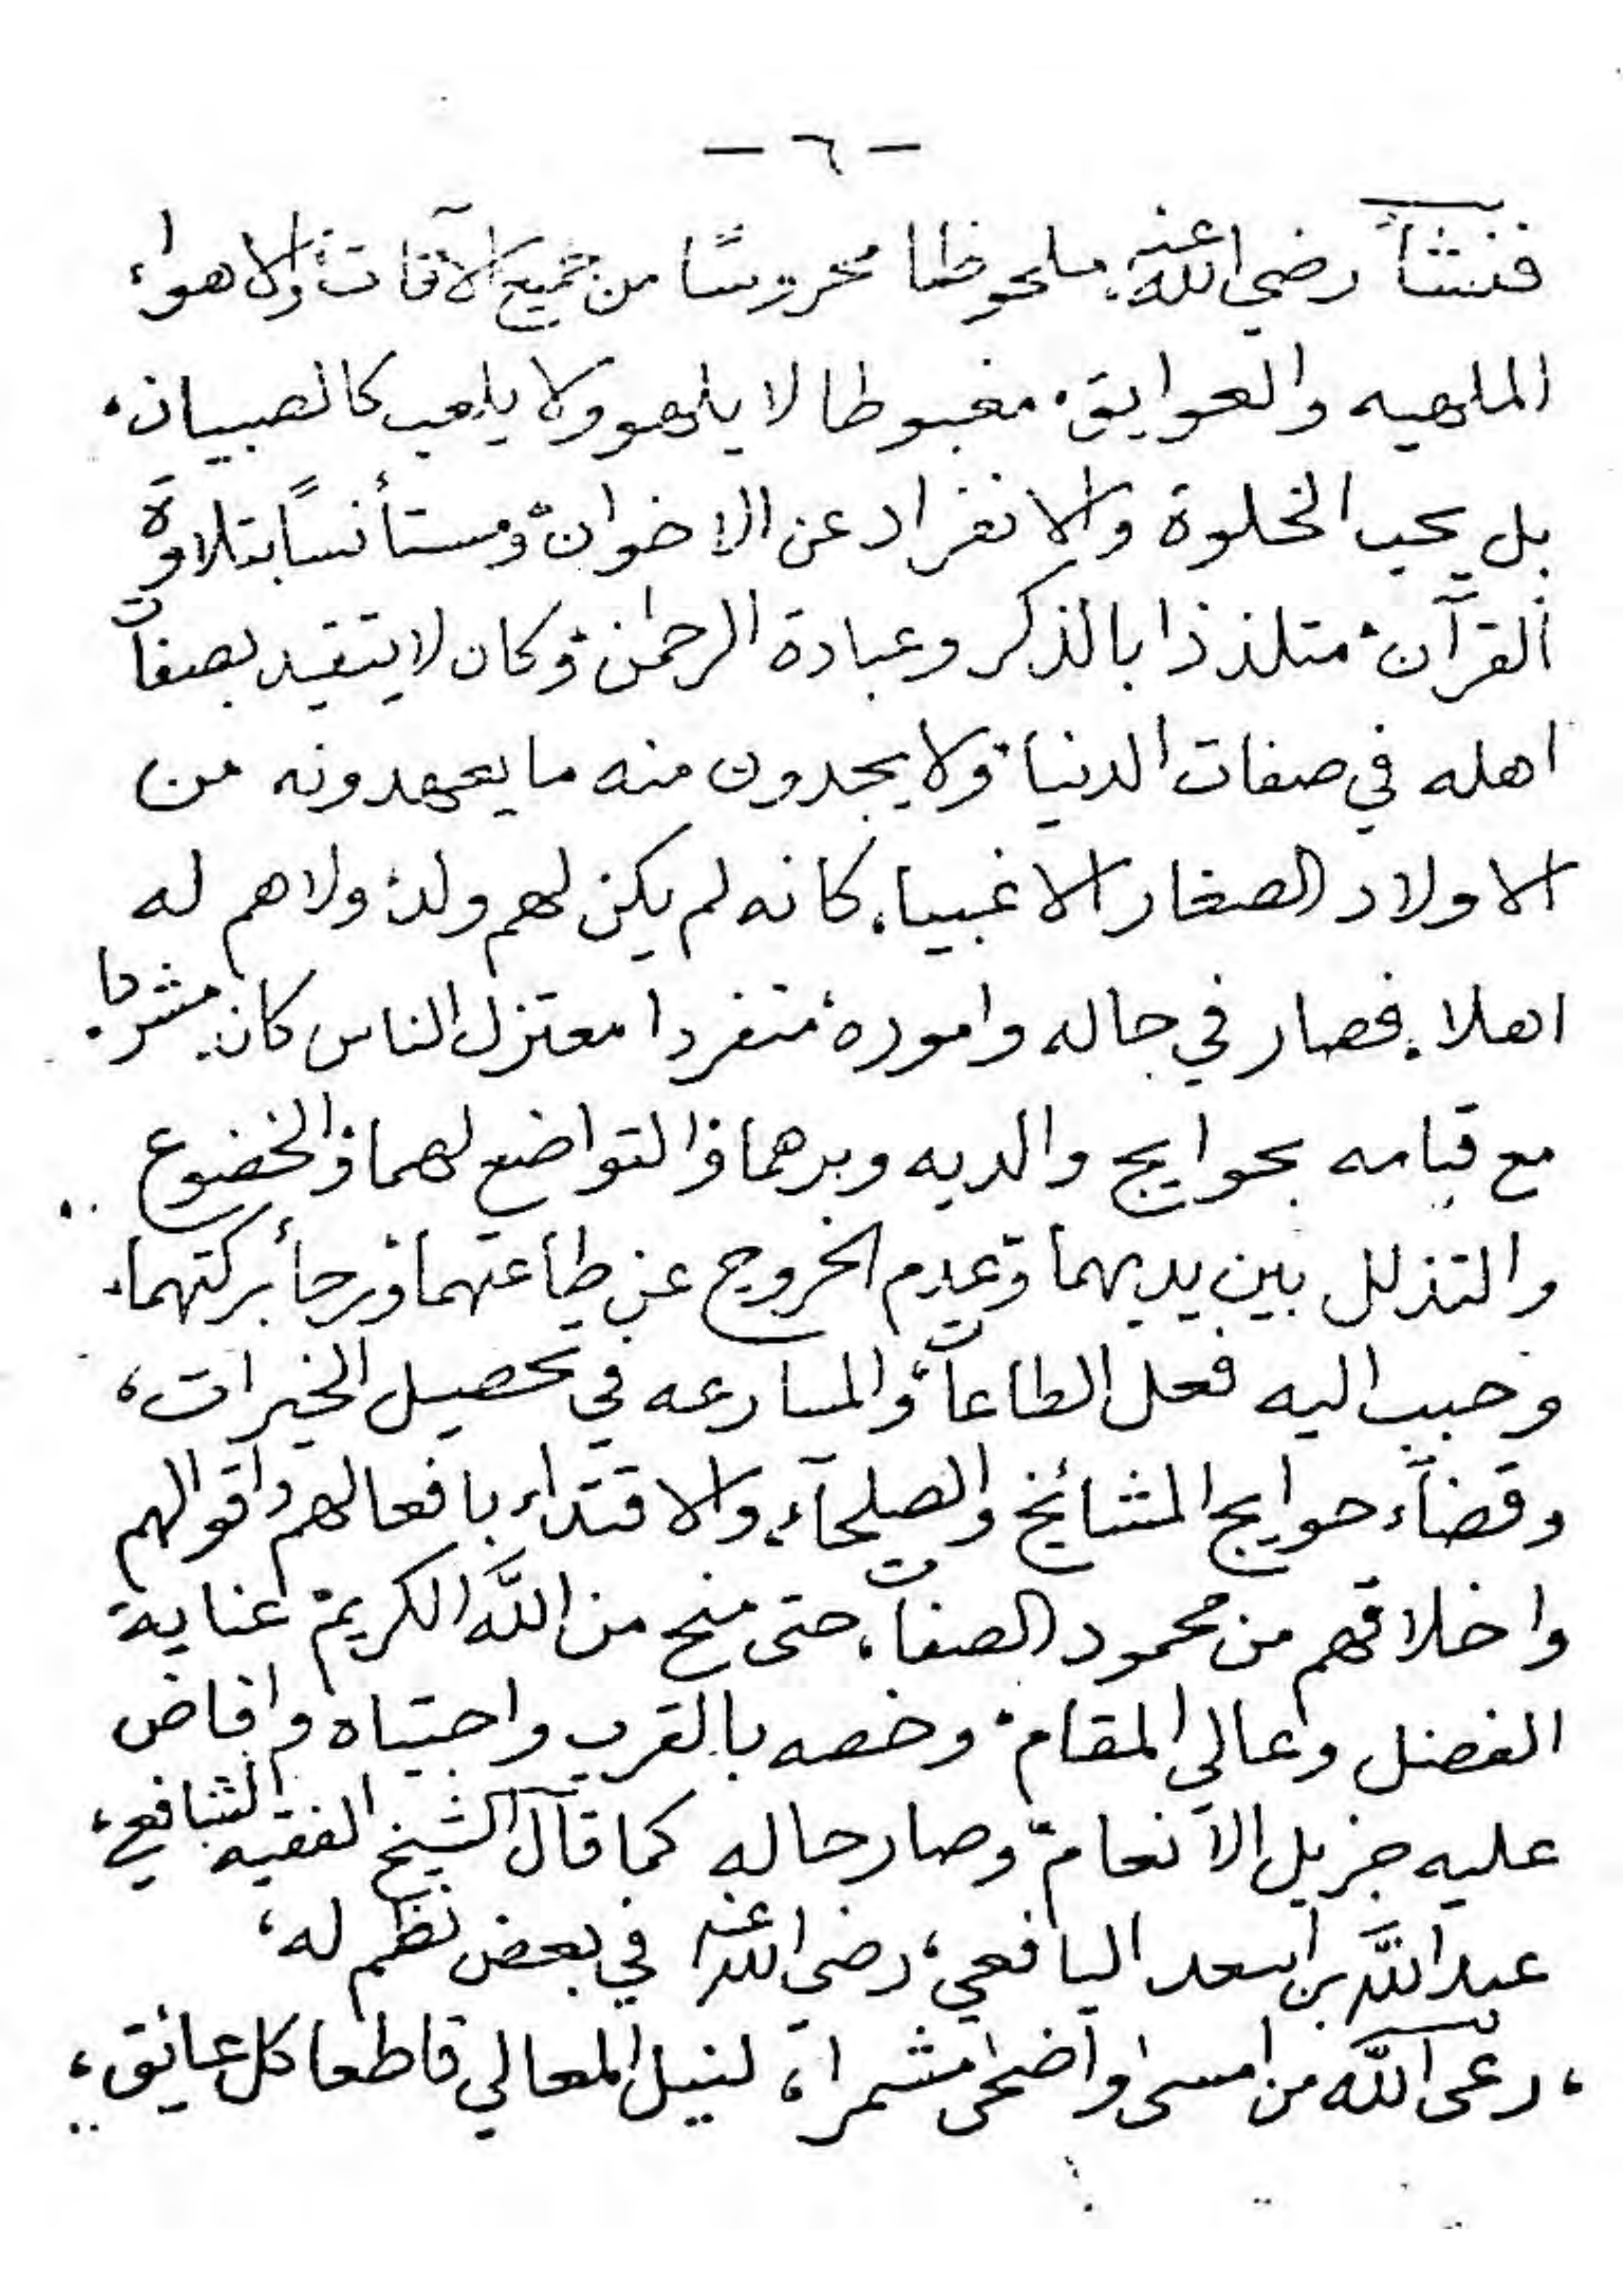 - ٦ -
فنشأ رضي الله عنه ملحوظا محروسًا من جميع الآفات، والاهواء،
الملهيه والعوايق، مغبوطا لا يلهو ولا يلعب كالصبيان،
بل يحب الخلوة والانفراد عن الاخوان، ومستأنسًا بتلاوة
القرآن، متلذذا بالذكر وعبادة الرحمٰن، وكان لا يتقيد بصفات
اهله في صفات الدنيا، ولا يجدون منه ما يعهدونه من
الاولاد الصغار الاغبيا، كانه لم يكن لهم ولد، ولا هم له
اهلا، فصار في حاله واموره، متفردا معتزل الناس كان
مع قيامه بحوايج والديه وبرهما، والتواضع لهما، والخضوع
والتذلل بين يديهما، وعدم الخروج عن طاعتهما، ورجأ بركتهما،
وحبب اليه فعل الطاعات، والمسارعه في تحصيل الخيرات،
وقضآء حوايج المشائخ والصلحآء، والاقتداء بافعالهم واقوالهم
واخلاقهم من محمود الصفات، حتى منح من اللَّه الكريم، عناية
الفضل وعالي المقام، وخصه بالقرب واجتباه وافاض
عليه جزيل الانعام، وصار حاله كما قال الشيخ الفقيه الشافعي،
عبد اللَّه بن اسعد اليافعي، رضي الله عنه في بعض نظم له،
، رعى اللَّه من امسى واضحى مشمرا، لنيل المعالي قاطعا كل عائق،